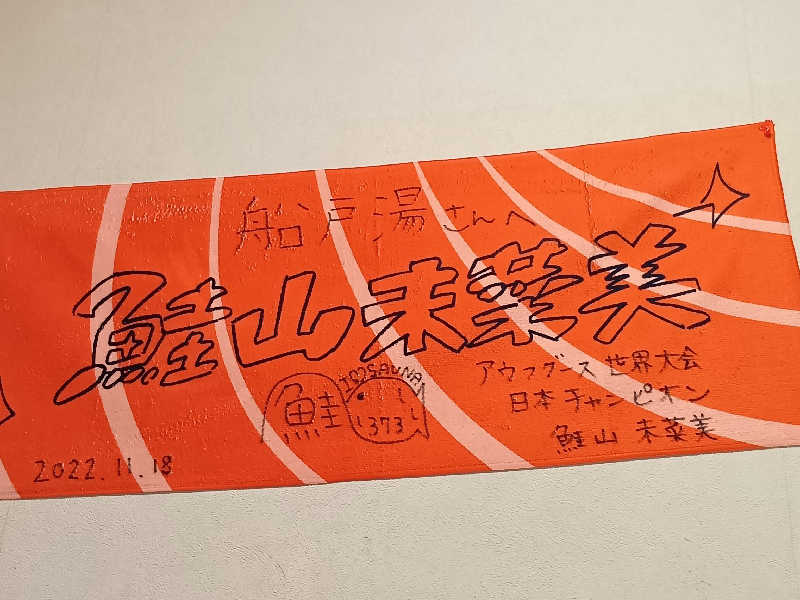 船戸湯さんへ
鮭山未菜美
アウフグース世界大会
日本チャンピオン
鮭山 未菜美
鮭
SAUNA
1373
2022.11.18